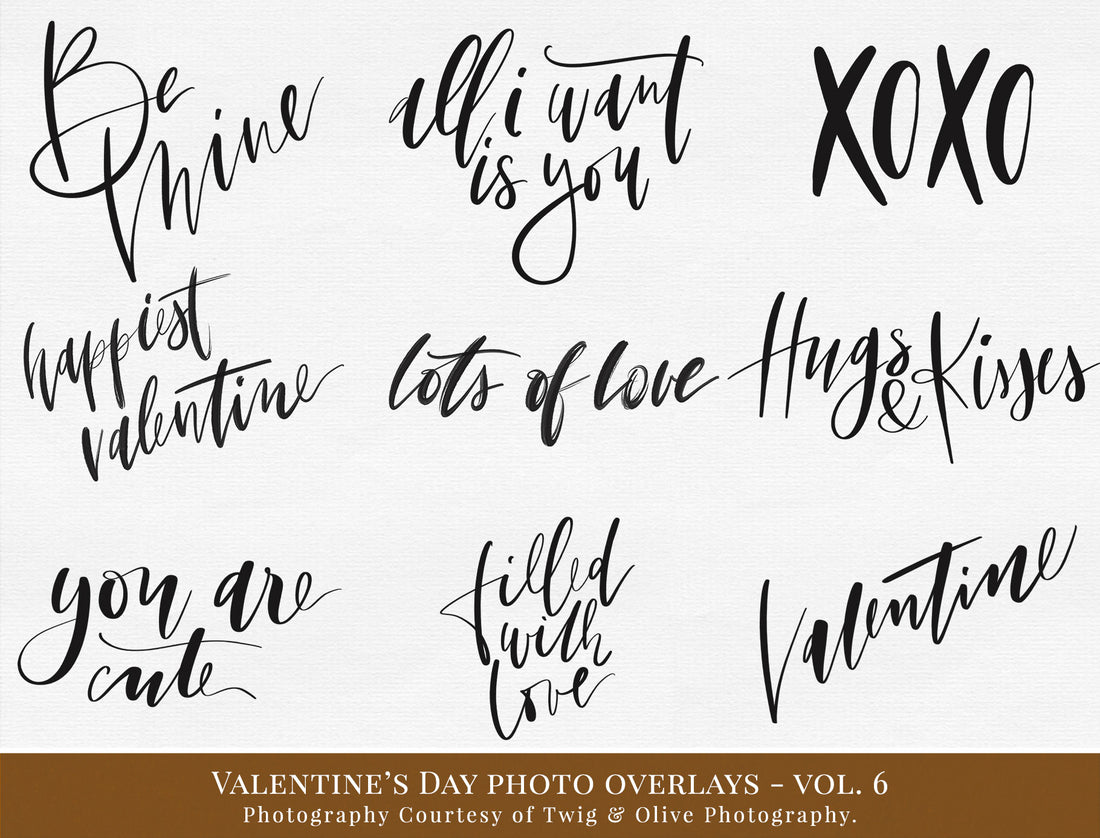 Be
Mine
all i want
is you
XOXO
happiest
valentine
lots of love
Hugs
& Kisses
you are
cute
filled
with
love
Valentine
Valentine's Day photo overlays - vol. 6
Photography Courtesy of Twig & Olive Photography.